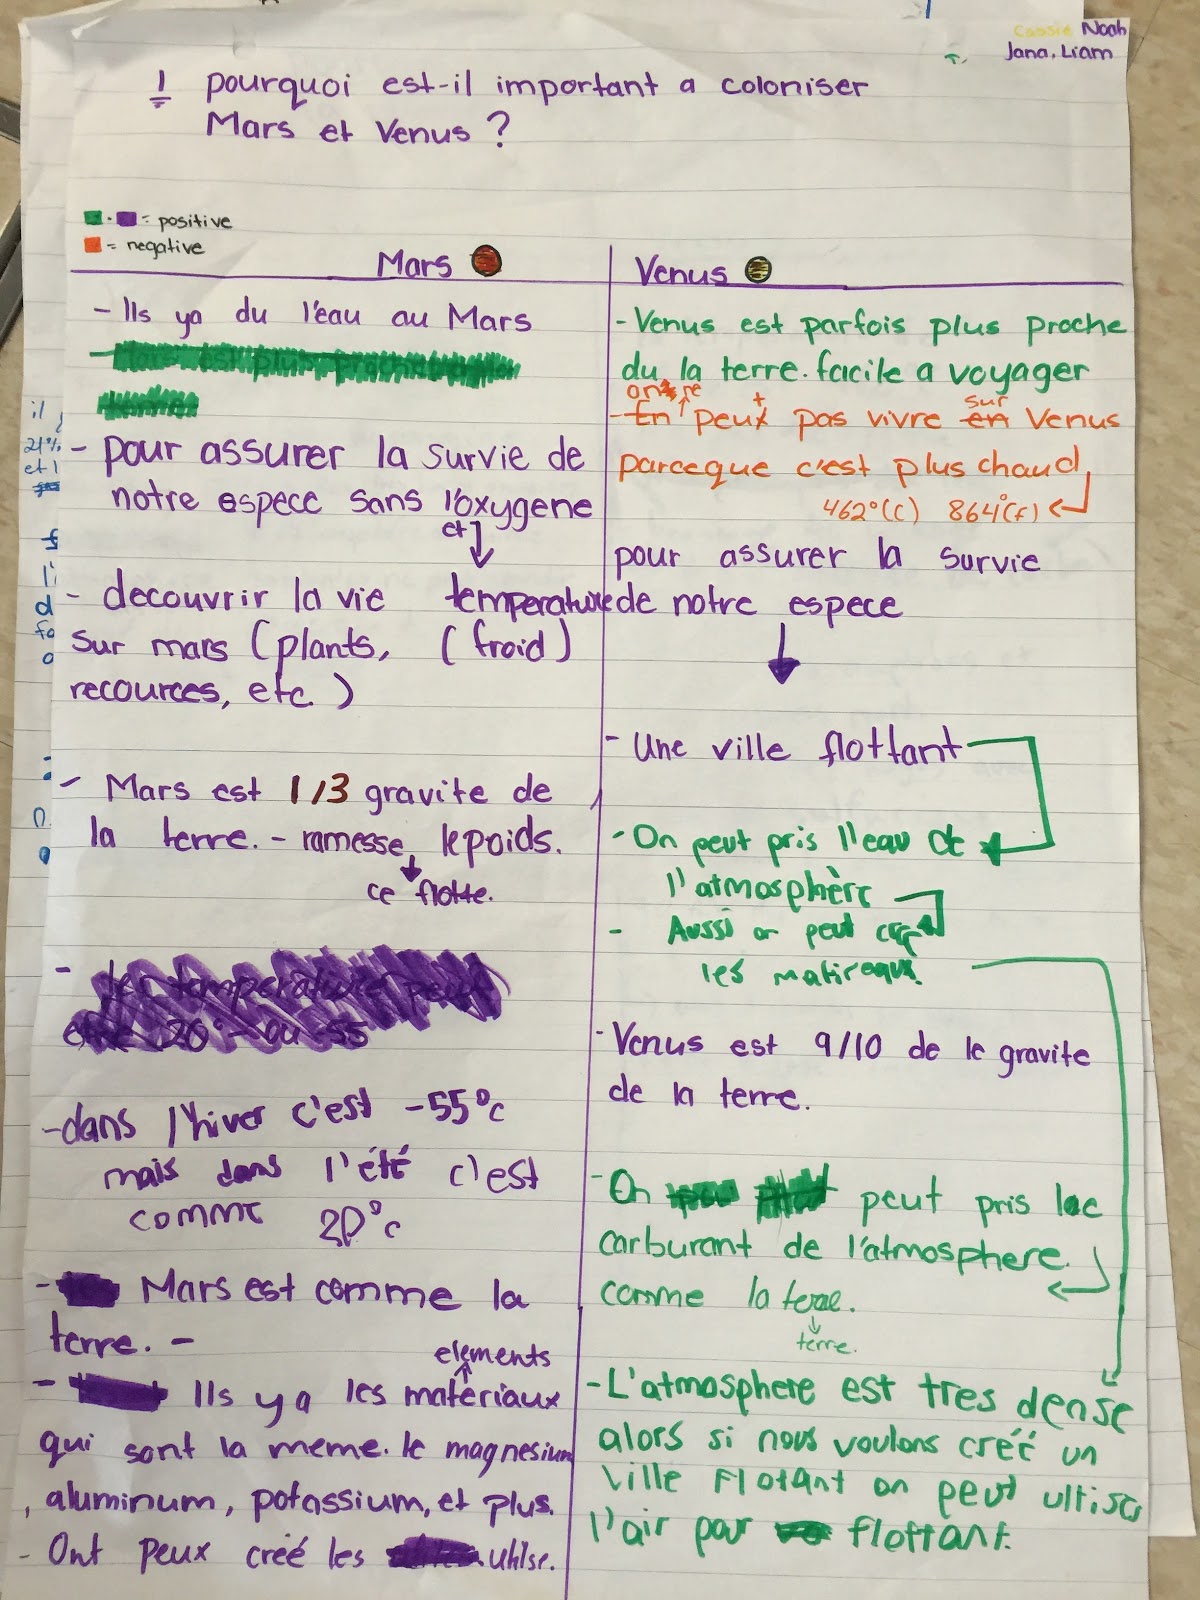 Cassie Noah
Jana, Liam
1 pourquoi est-il important a coloniser
Mars et Venus ?
= positive
= negative
Mars
- Ils ya du l'eau au Mars
- pour assurer la survie de
notre espece sans l'oxygene
et
temperature
(froid)
- decouvrir la vie
sur mars (plants,
recources, etc.)
- Mars est 1/3 gravite de
la terre. - ramesse le poids.
ce flotte.
-dans l'hiver c'est -55°c
mais dans l'été c'est
comme 20°c
- Mars est comme la
terre. -
elements
- Ils ya les matériaux
qui sont la meme. le magnesium
, aluminum, potassium, et plus.
- Ont peux creé les
Venus
- Venus est parfois plus proche
du la terre. facile a voyager
- En peux t pas vivre sur en Venus
parceque c'est plus chaud
462°(c) 864°(f)
pour assurer la survie
de notre espece
- Une ville flottant
- On peut pris l'eau de
l'atmosphère
- Aussi on peut
les
- Venus est 9/10 de le gravite
de la terre.
- On peut pris
carburant de l'atmosphere
comme la terre.
terre.
- L'atmosphere est tres dense
alors si nous voulons creé un
ville flotant on peut
l'air par flottant.
il
21%
et l